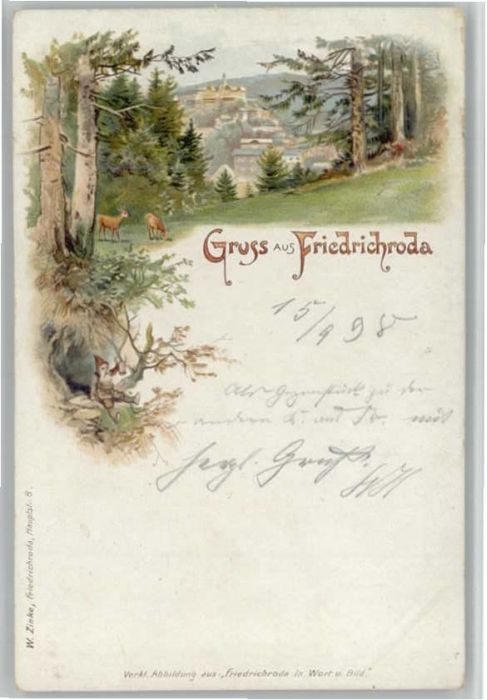 Gruss aus Friedrichroda
15/9 98
Als Gegenstück zu der
andern K. aus Fr. mit
herzl. Gruß.
W. Zinke, Friedrichroda, Hauptstr. 8.
Verkl. Abbildung aus „Friedrichroda in Wort u. Bild."